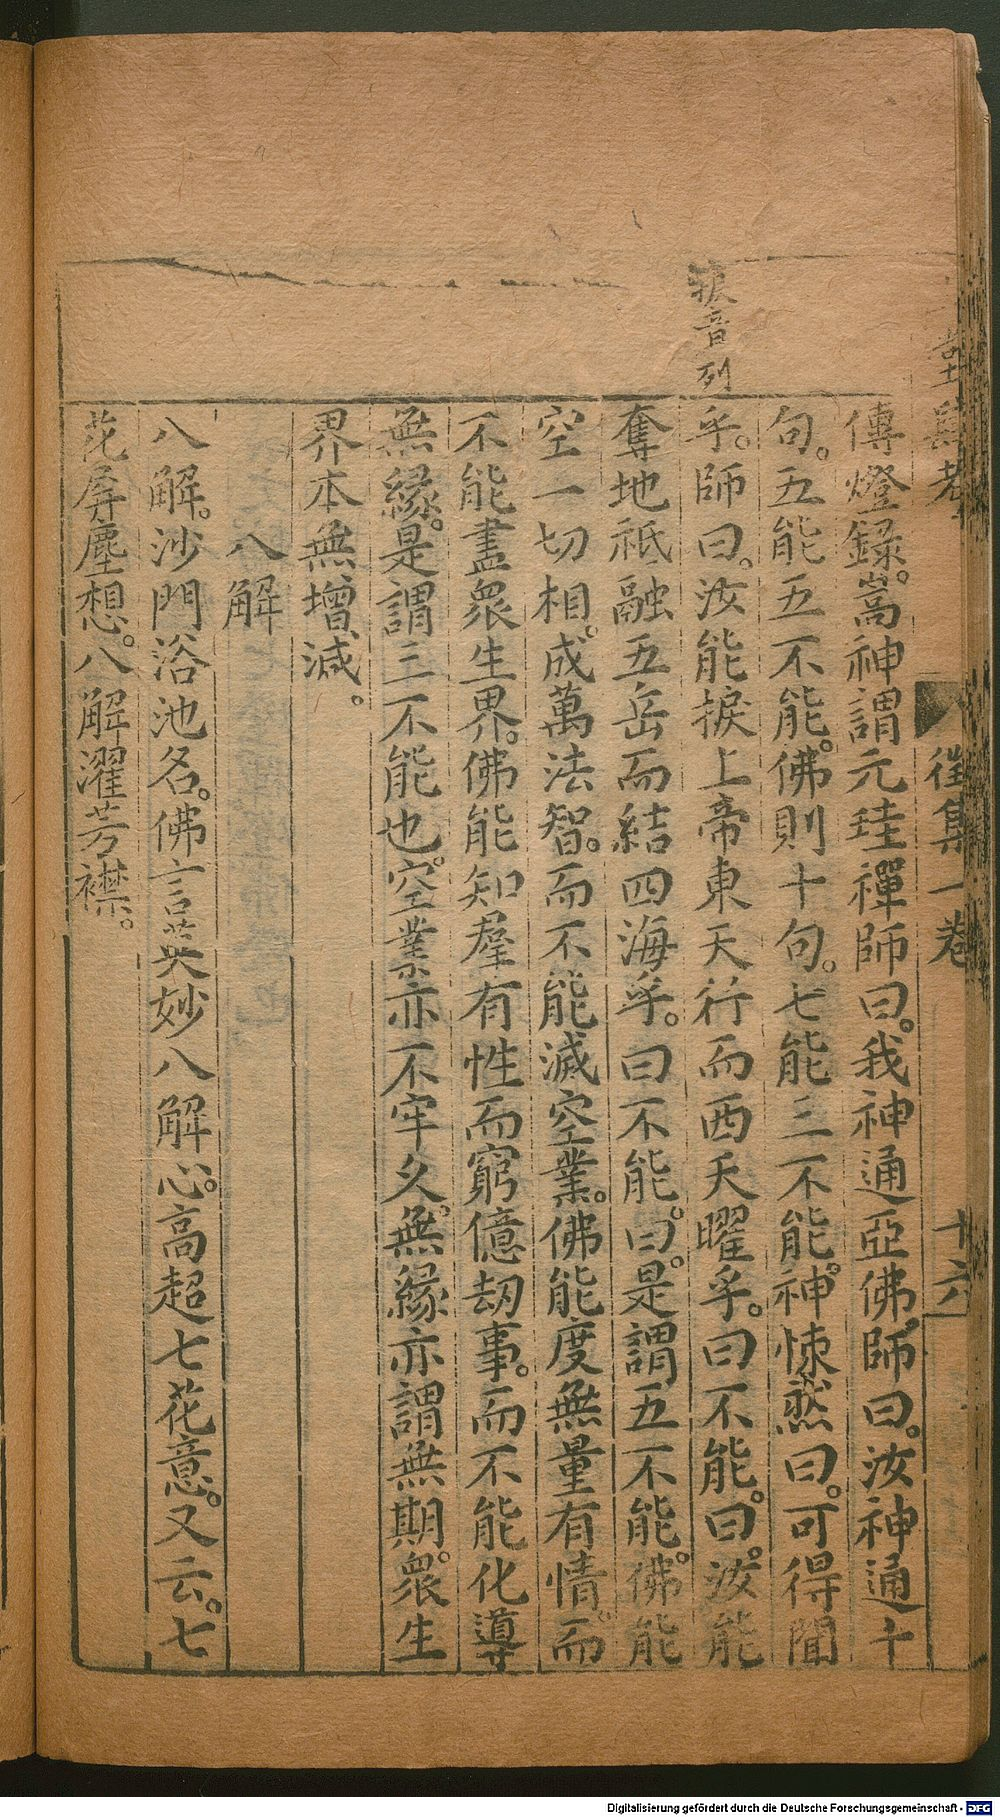 傳燈錄。嵩神謂元珪禪師曰。我神通亞佛。師曰。汝神通十
句。五能五不能。佛則十句。七能三不能。神悚然曰。可得聞
乎。師曰。汝能捩上帝東天行而西天曜乎。曰不能。曰。汝能
奪地祇融五岳而結四海乎。曰不能。曰。是謂五不能。佛能
空一切相。成萬法智。而不能滅空業。佛能度無量有情。而
不能盡衆生界。佛能知羣有性而窮億劫事。而不能化導
無緣。是謂三不能也。空業亦不牢久。無緣亦謂無期。衆生
界本無增減。
八解
八解。沙門浴池名。佛言英妙八解心。高超七花意。又云。七
花屏塵想。八解濯芳襟。
捩音列
徃集一卷
十六
Digitalisierung gefördert durch die Deutsche Forschungsgemeinschaft - DFG